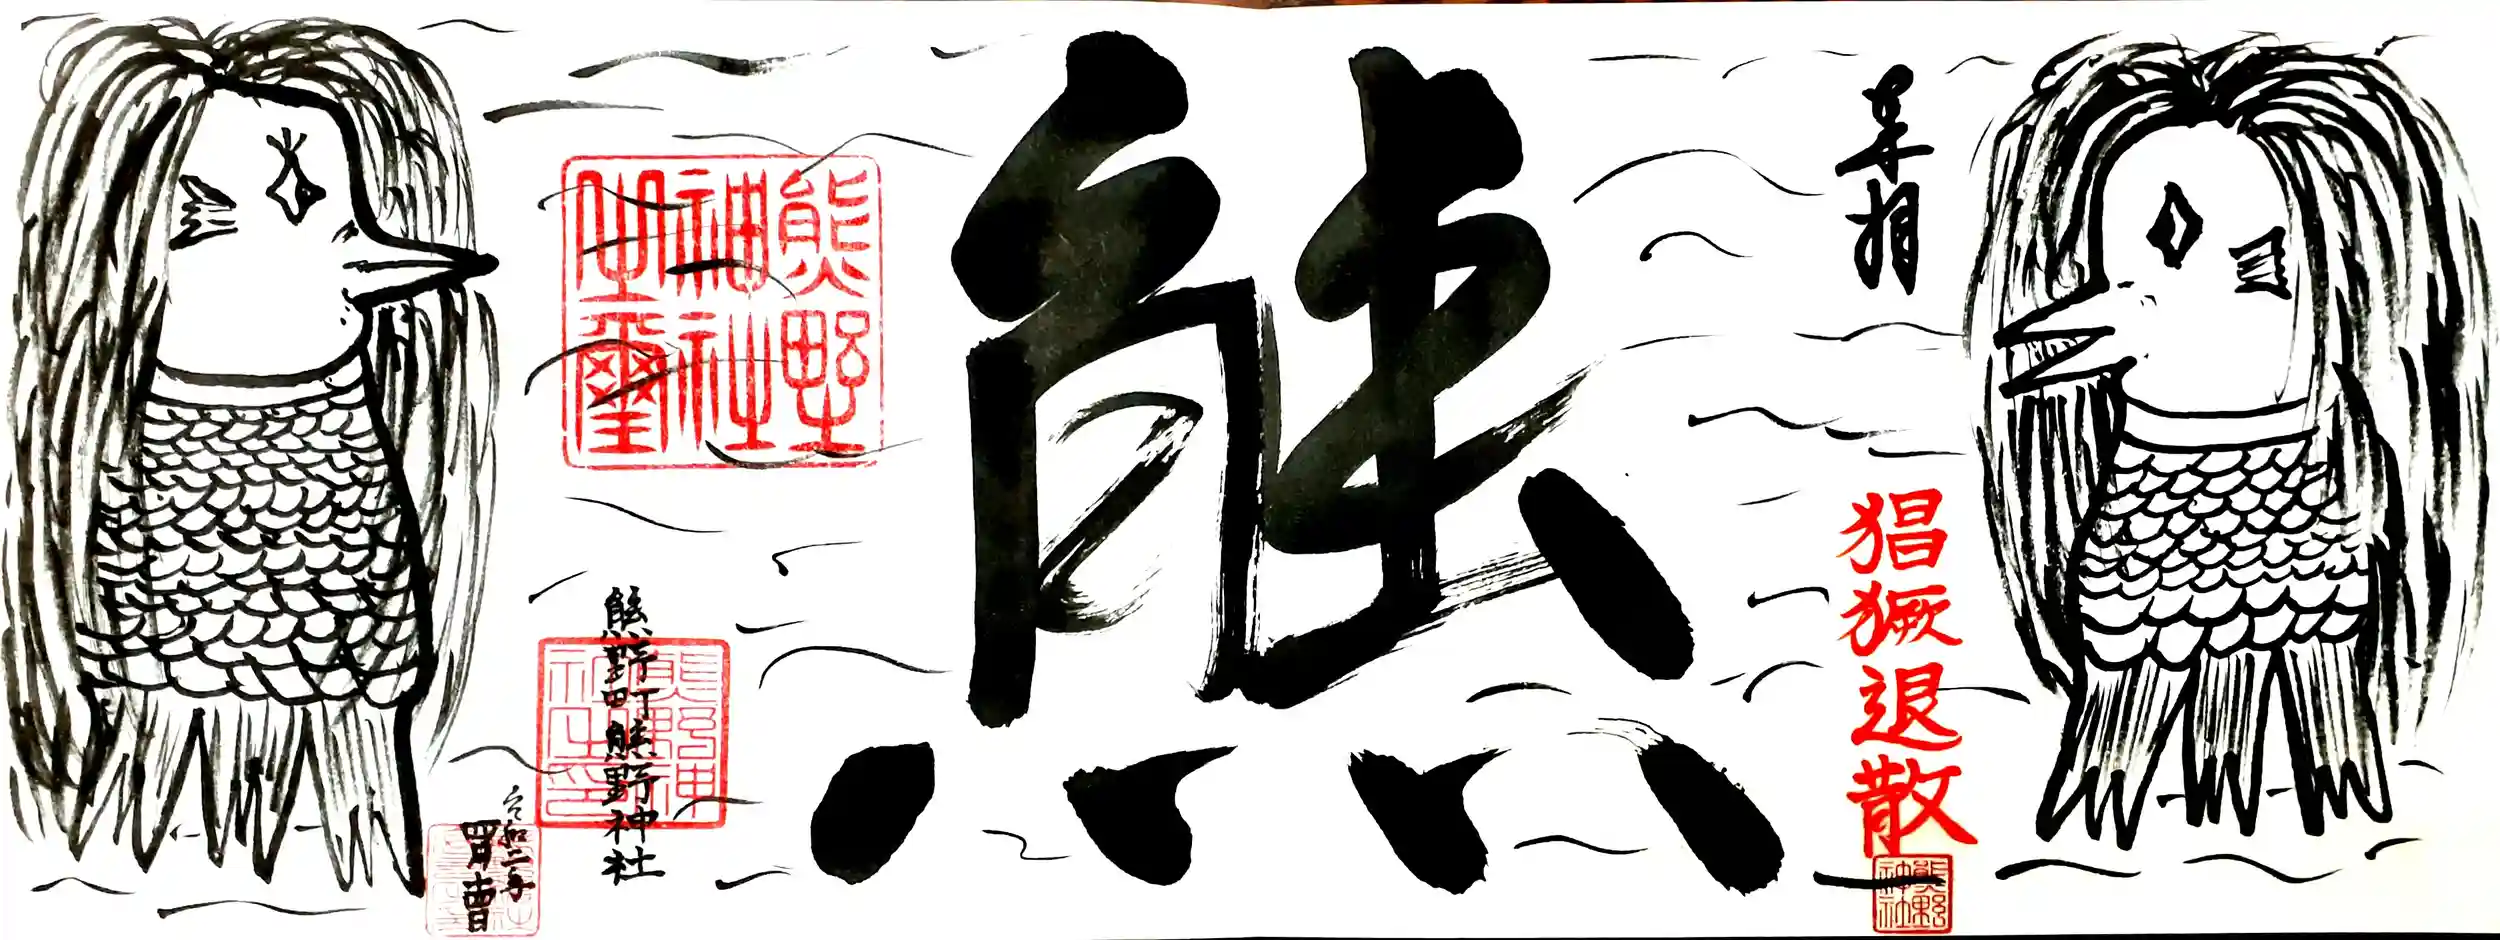 奉拝
猖獗退散
熊野神社
熊
熊野神社之璽
熊野町熊野神社
熊野神社之印
令和二年
四月吉日